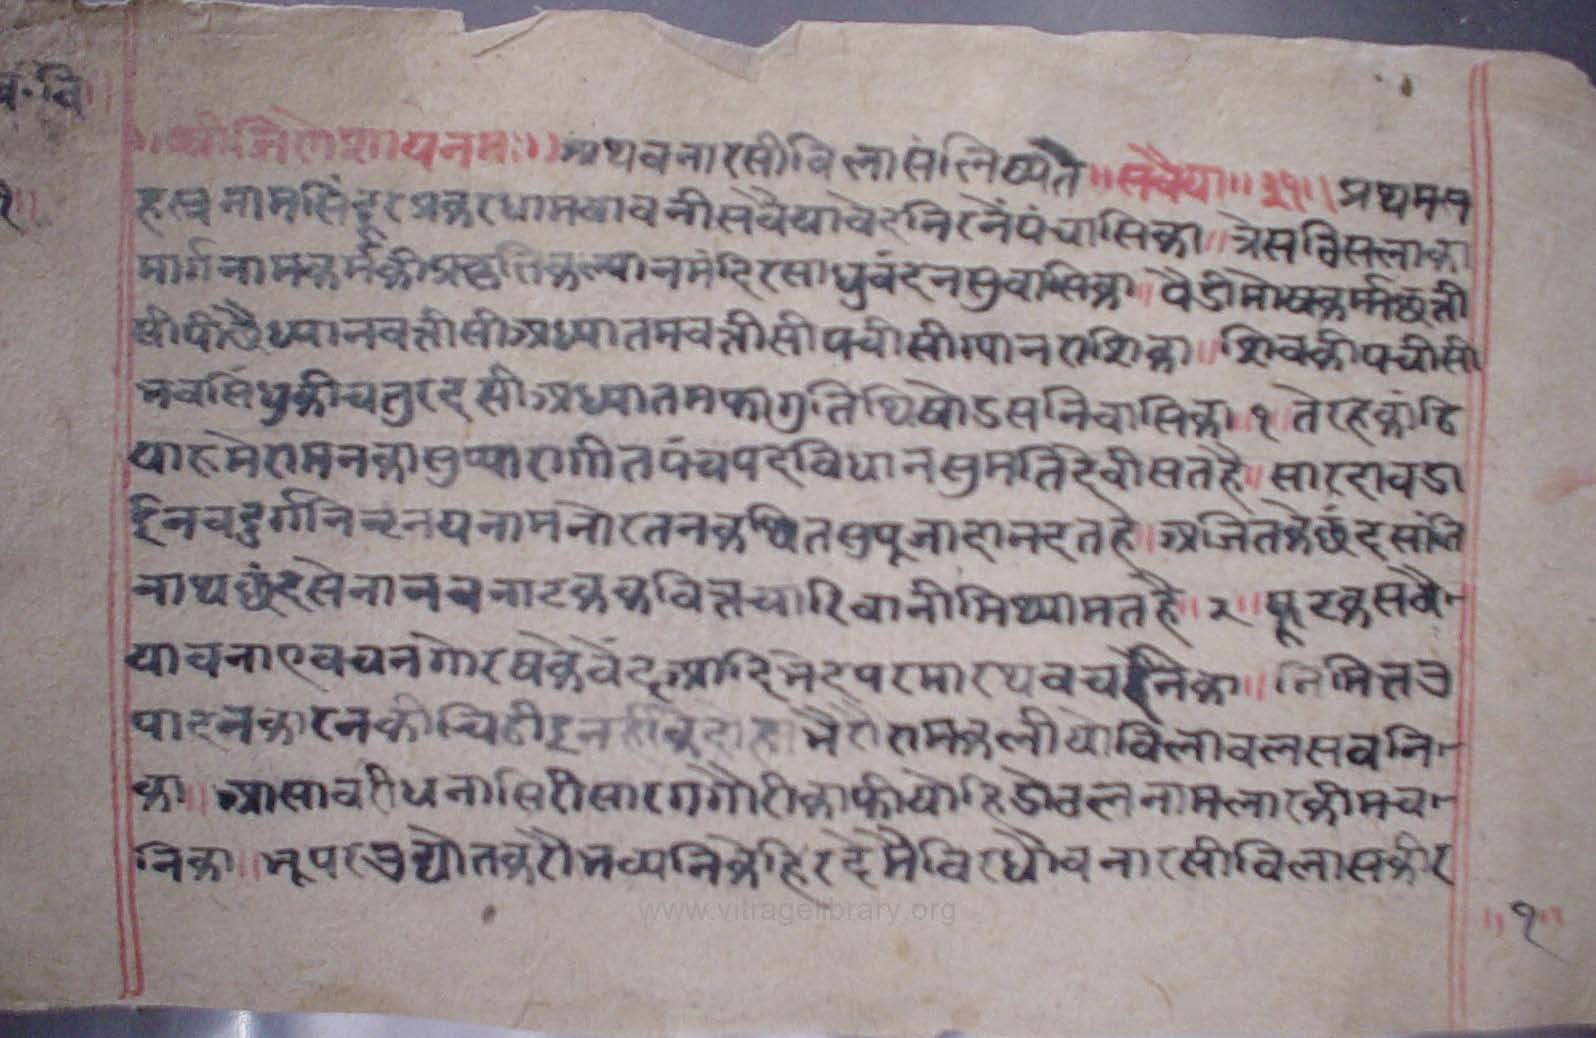 व. वि॥
॥श्रीजिनेशायनमः॥ अथ बनारसीविलास लिख्यते ॥सवैया॥३१॥ प्रथम स
हस्र नाम सिंदूर प्रकर धाम बावनी सवैया वेद निरनै पंचासिका॥ त्रेसठि सलाका
मार्गना मकर्मकी प्रकृति कल्यानमंदिर साधुबंदन सुवासिका॥ पैडी मोष्य कर्मछत्ती
सी पीछै ध्यानबत्तीसी अध्यातमबत्तीसी पचीसी ग्यान राशिका॥ शिवकी पचीसी
भवसिंधुकी चतुरदसी अध्यातम फागु तिथि षोडस निवासिका॥१॥ तेरह काठि
या रु मेरा मनका सुप्यारा गीत पंचपद विधान सुमति देवी सत है॥ सारदा बडा
ई नवदुर्गा निरनय नाम नौ रतन कथित सु पूजा दानदत है॥ अजितके छंद सांति
नाथ छंद सेना नव नाटक कवित्त चारि वानी मिथ्या मत है॥२॥ फूटक सवै
या बनाए वचन गोरषके वैद्य आदि भेद परमारथ वचनिका॥ निमित्त उ
पादानका रनकी चिठी इनही के दोहा भैरौ रामकली यो विलावल सवनि
का॥ आसावरी धनासिरी सारग गौरी काफी यो हिडोलना मलारकी मच
निका॥ भूपर उद्योत करौ भव्यनिके हिरदैमै विरधौ बनारसीविलासकी र
॥१॥
www.vitragelibrary.org